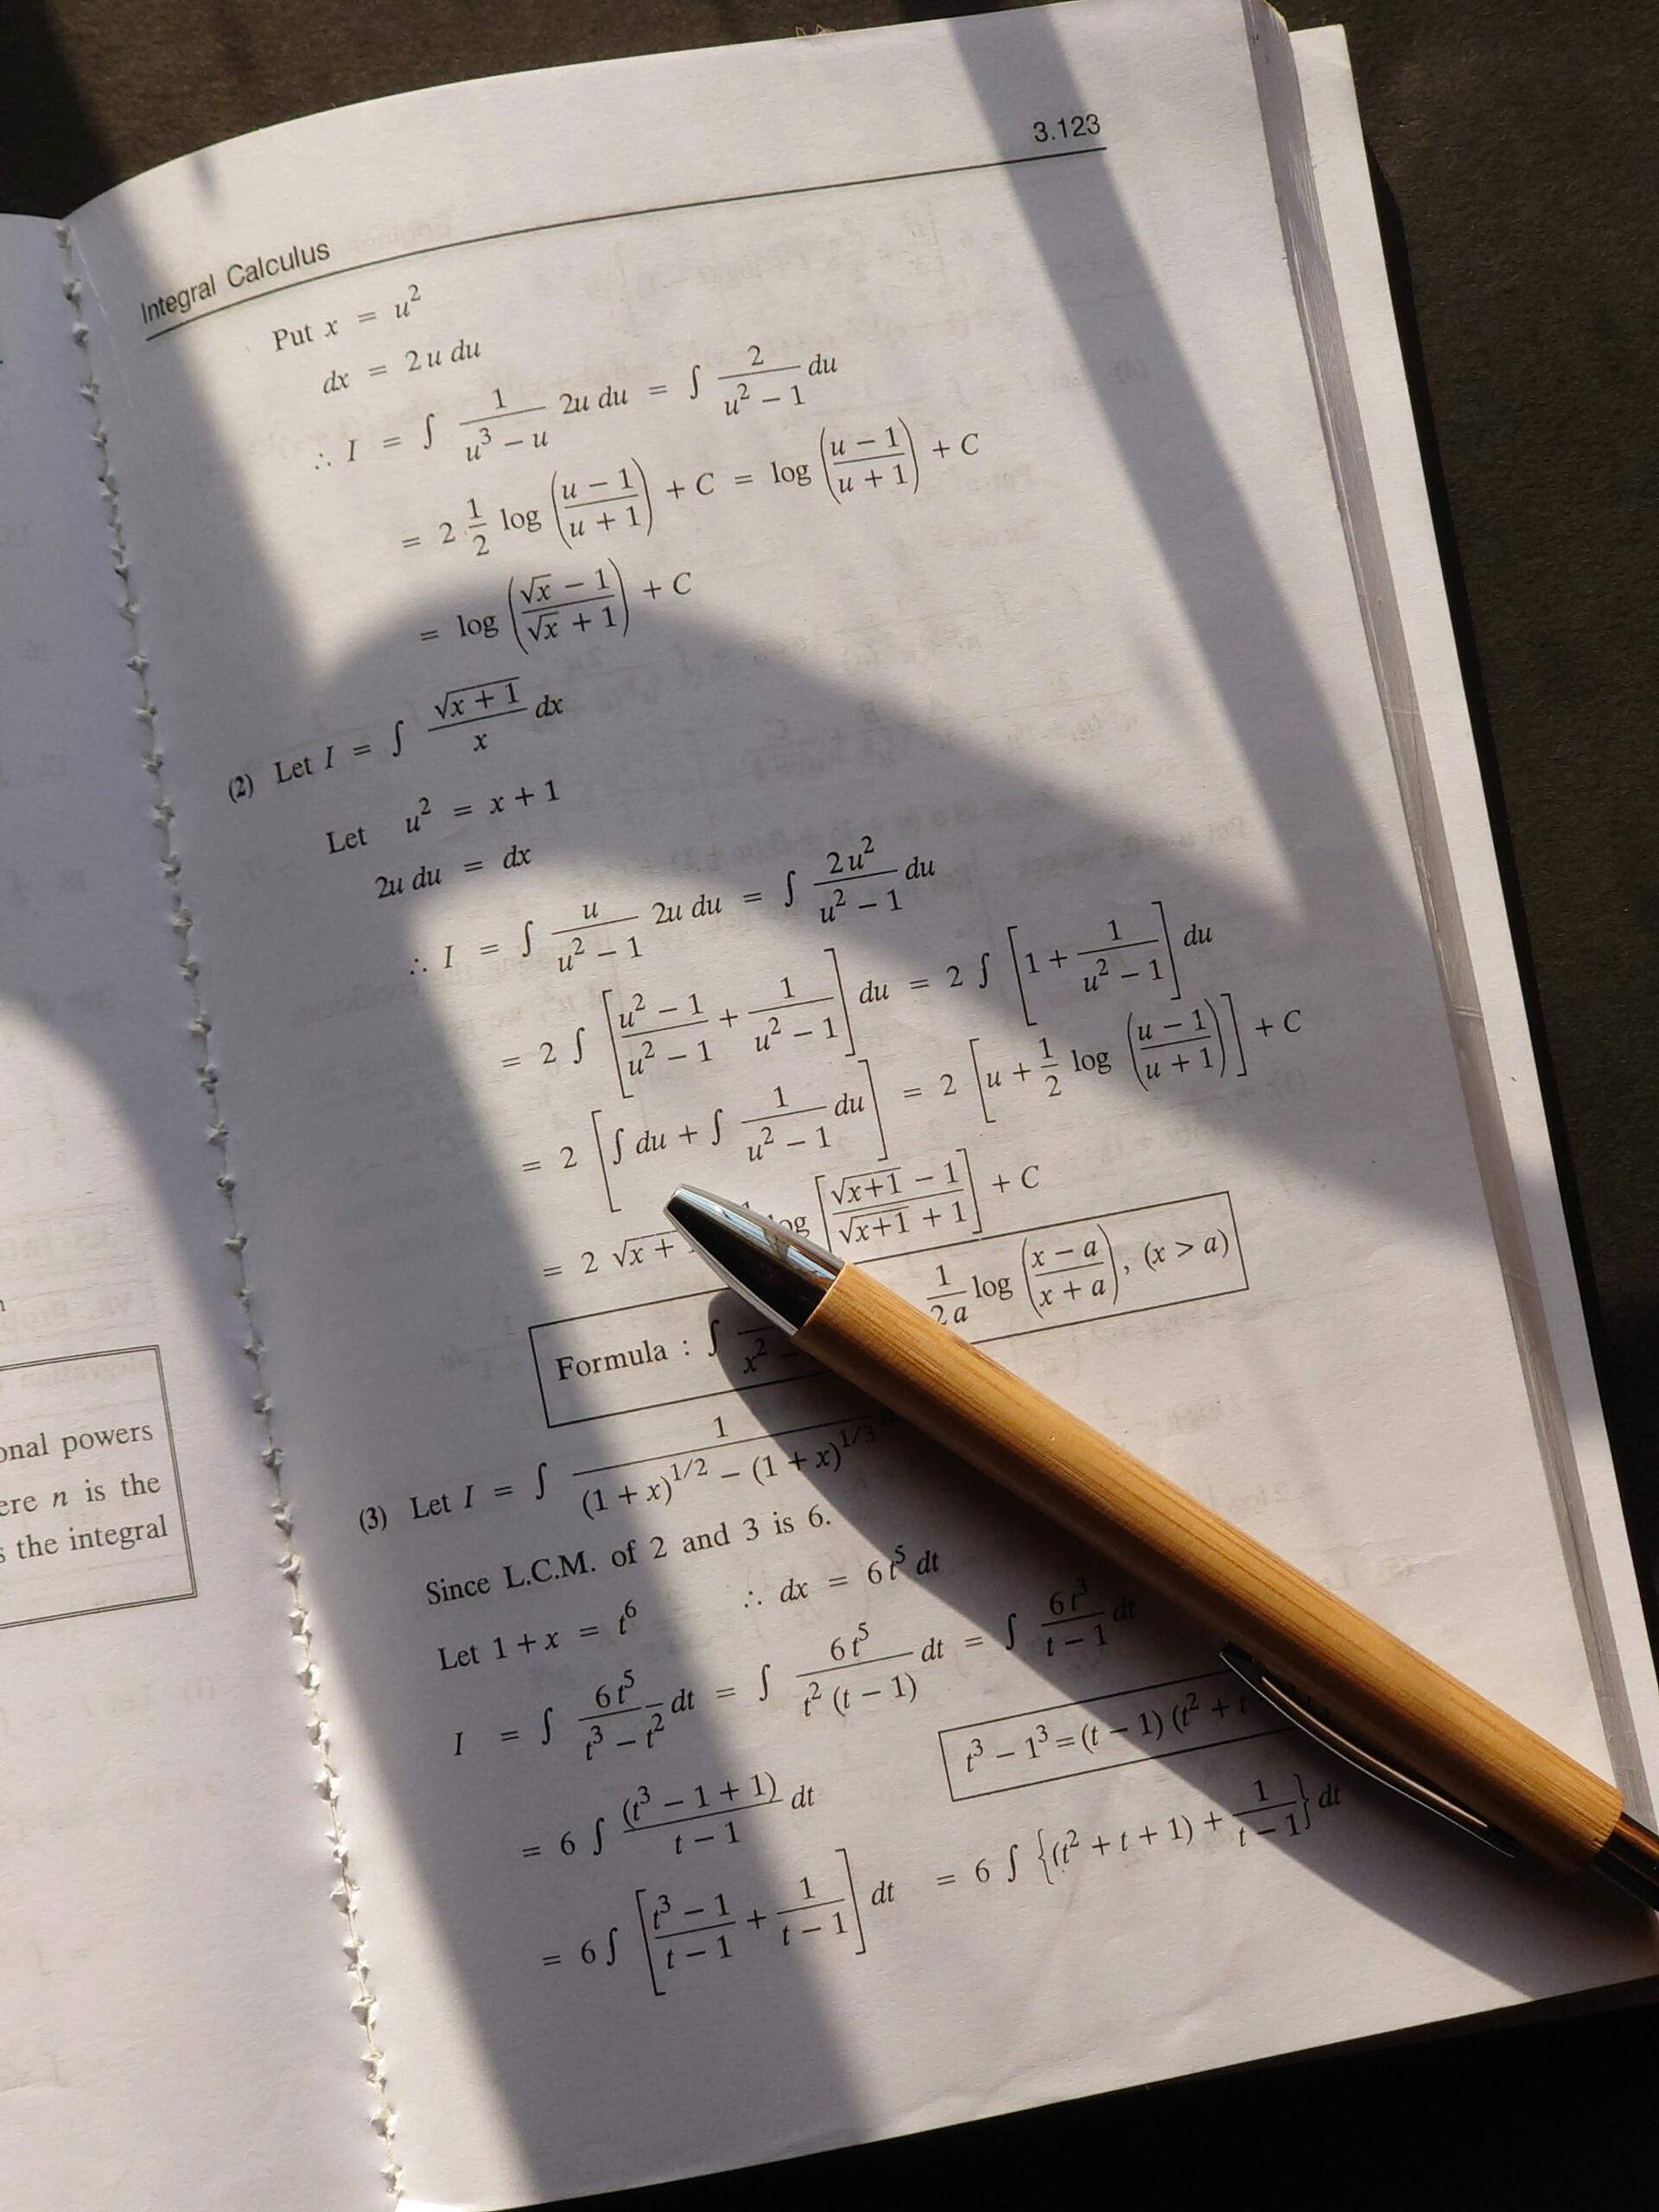 onal powers
ere n is the
s the integral
Integral Calculus 3.123
Put x = u²
dx = 2 u du
∴ I = ∫ 1/(u³ − u) 2u du = ∫ 2/(u² − 1) du
= 2 1/2 log ((u − 1)/(u + 1)) + C = log ((u − 1)/(u + 1)) + C
= log ((√x − 1)/(√x + 1)) + C
(2) Let I = ∫ √(x + 1)/x dx
Let u² = x + 1
2u du = dx
∴ I = ∫ u/(u² − 1) 2u du = ∫ 2u²/(u² − 1) du
= 2 ∫ [(u² − 1)/(u² − 1) + 1/(u² − 1)] du = 2 ∫ [1 + 1/(u² − 1)] du
= 2 [∫ du + ∫ 1/(u² − 1) du] = 2 [u + 1/2 log ((u − 1)/(u + 1))] + C
= 2 √x + og [(√x+1 − 1)/(√x+1 + 1)] + C
Formula : ∫ x² − 1/2a log ((x − a)/(x + a)), (x > a)
(3) Let I = ∫ 1/((1 + x)^1/2 − (1 + x)^1/3)
Since L.C.M. of 2 and 3 is 6.
Let 1 + x = t⁶ ∴ dx = 6 t⁵ dt
I = ∫ 6 t⁵/(t³ − t²) dt = ∫ 6 t⁵/(t² (t − 1)) dt = ∫ 6 t³/(t − 1) dt
t³ − 1³ = (t − 1) (t² + t
= 6 ∫ (t³ − 1 + 1)/(t − 1) dt
= 6 ∫ [(t³ − 1)/(t − 1) + 1/(t − 1)] dt = 6 ∫ {(t² + t + 1) + 1/(t − 1)} dt